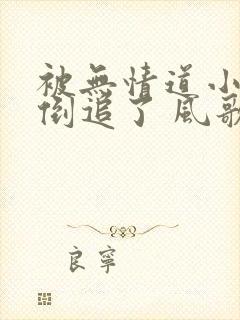 被無情道小
倒追了 風歌
良寧